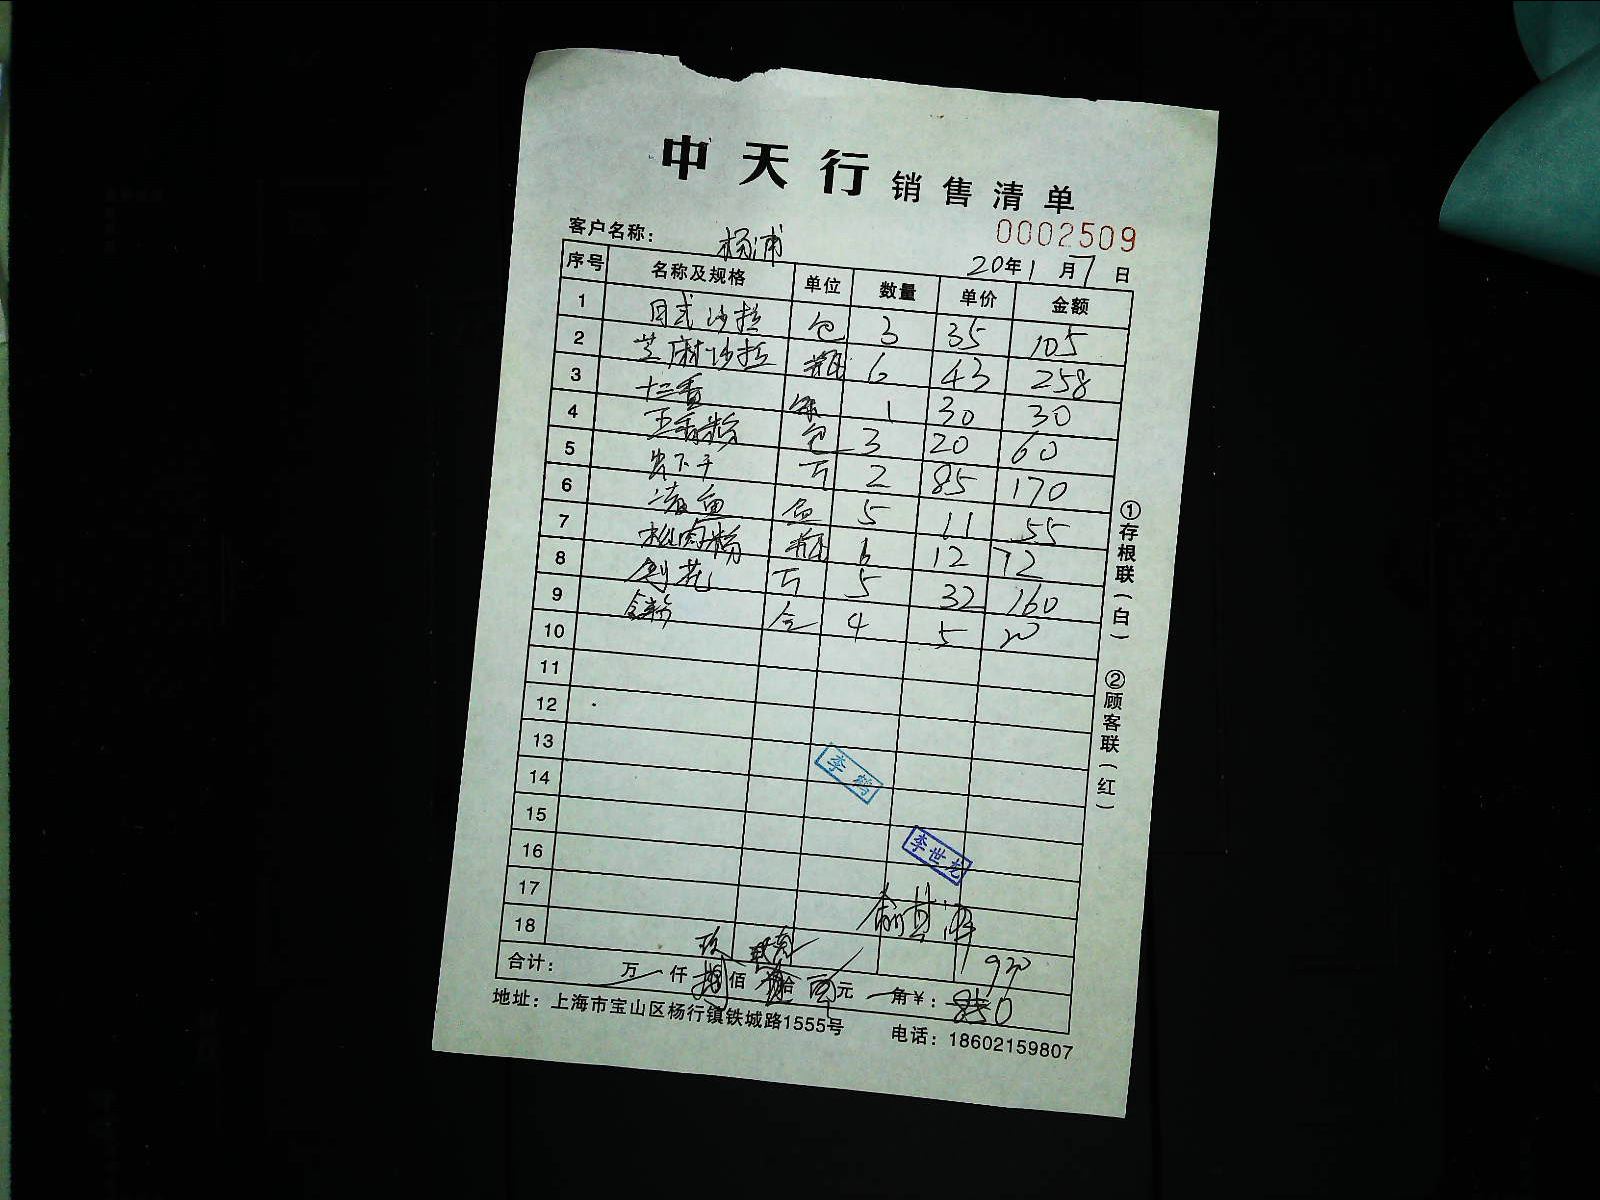 中天行 销售清单
0002509
客户名称： 杨浦
20年1月7日
序号 名称及规格 单位 数量 单价 金额
1 日式沙拉 包 3 35 105
2 芝麻沙拉 瓶 6 43 258
3 十三香 1 30 30
4 五香粉 包 3 20 60
5 2 85 170
6 鱼 5 11 55
7 松肉粉 瓶 6 12 72
8 5 32 160
9 4 5 20
10
11
12
13
14
15
16
17
18
李鹤
李世龙
玖
930
合计： 万 仟 佰 拾 元 角 ¥：
地址：上海市宝山区杨行镇铁城路1555号 电话：18602159807
①存根联（白）
②顾客联（红）